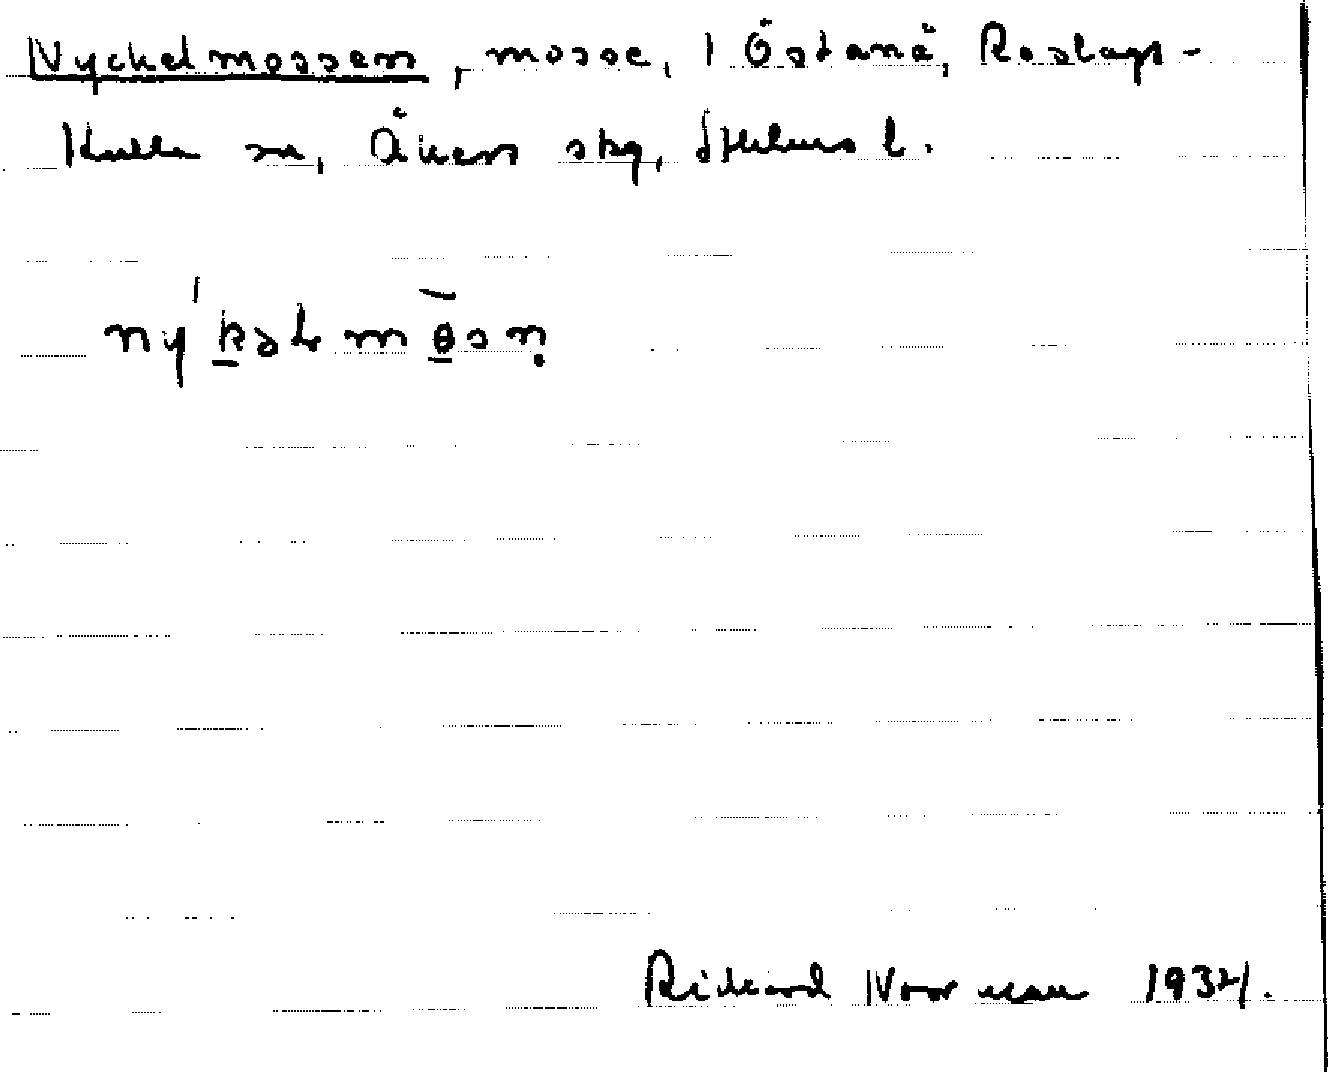 Nyckelmossen, mosse, 1 Östanå, Roslags-
Kulla sn, Åkers skg, Sthlms l.
ný'kəlmo̱̅sn̥
Rickard Norrman 1934.